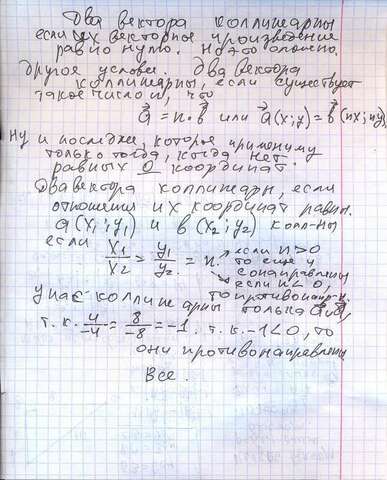 Два вектора коллинеарны
если их векторное произведение
равно нулю. Но это сложно.
Другое условие. Два вектора
коллинеарны, если существует
такое число n, что
a = n·b или a(x;y) = b(nx;ny)
ну и последнее, которое применимо
только тогда, когда нет
равных 0 координат.
Два вектора коллинеарн, если
отношения их координат равны.
a(x1;y1) и b(x2;y2) колл-ны
если x1/x2 = y1/y2 = n. если n>0
то еще и
сонаправлены
если n<0,
то противонапр-н.
у нас коллинеарны только
т.к. 4/-4 = 8/-8 = -1. т.к. -1<0, то
они противонаправлены
Все.